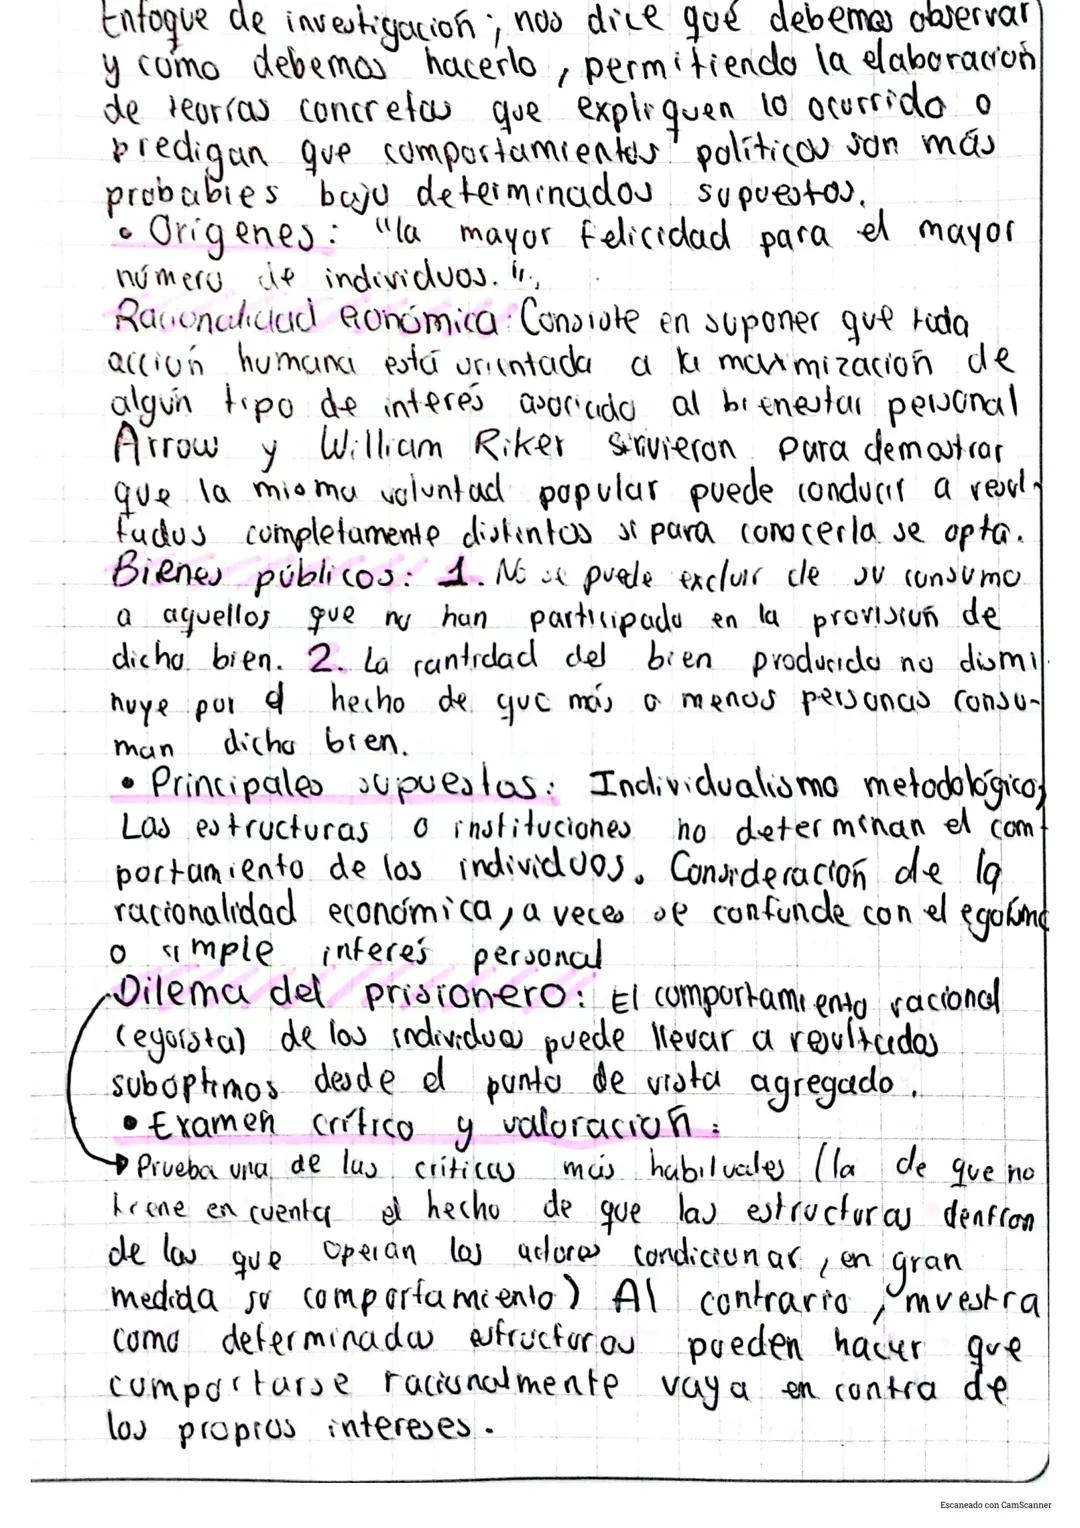 Enfoque de investigación; nos dice qué debemos observar
y cómo debemos hacerlo, permitiendo la elaboración
de teorías concretas que expliquen lo ocurrido o
predigan que comportamientos políticos son más
probables bajo determinados supuestos.
• Orígenes: "la mayor felicidad para el mayor
número de individuos."
Racionalidad económica: Consiste en suponer que toda
acción humana está orientada a la maximización de
algún tipo de interés asociado al bienestar personal
Arrow y William Riker sirvieron para demostrar
que la misma voluntad popular puede conducir a resul-
tados completamente distintos si para conocerla se opta.
Bienes públicos: 1. No se puede excluir de su consumo
a aquellos que no han participado en la provisión de
dicho bien. 2. La cantidad del bien producido no dismi-
nuye por el hecho de que más o menos personas consu-
man dicho bien.
• Principales supuestos: Individualismo metodológico;
Las estructuras o instituciones no determinan el com-
portamiento de los individuos. Consideración de la
racionalidad económica, a veces se confunde con el egoísmo
o simple interés personal
Dilema del prisionero: El comportamiento racional
(egoísta) de los individuos puede llevar a resultados
suboptimos desde el punto de vista agregado.
• Examen crítico y valoración:
Prueba una de las críticas más habituales (la de que no
tiene en cuenta el hecho de que las estructuras dentron
de las que operan los actores condicionar, en gran
medida su comportamiento) Al contrario, muestra
como determinadas estructuras pueden hacer que
comportarse racionalmente vaya en contra de
los propios intereses.
Escaneado con CamScanner